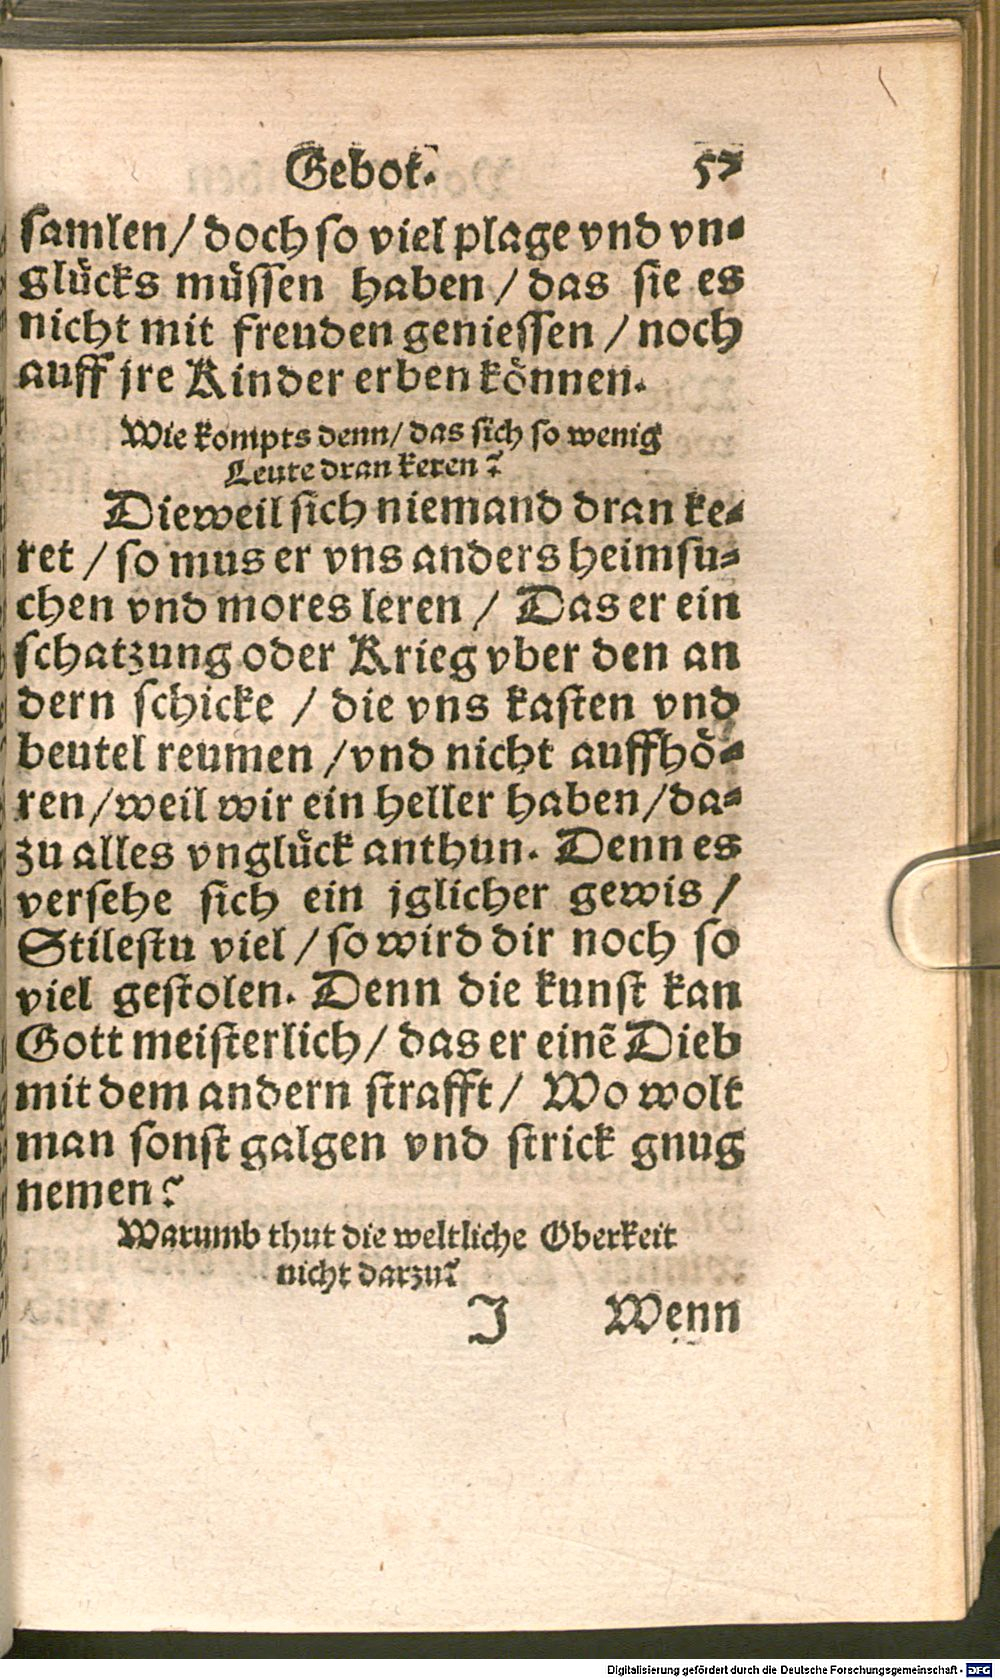 Gebot. 57
samlen / doch so viel plage vnd vn-
glücks müssen haben / das sie es
nicht mit freuden geniessen / noch
auff jre Kinder erben können.
Wie kompts denn / das sich so wenig
Leute dran keren?
Dieweil sich niemand dran ke-
ret / so mus er vns anders heimsu-
chen vnd mores leren / Das er ein
schatzung oder Krieg vber den an
dern schicke / die vns kasten vnd
beutel reumen / vnd nicht auffhö-
ren / weil wir ein heller haben / da-
zu alles vnglück anthun. Denn es
versehe sich ein jglicher gewis /
Stilestu viel / so wird dir noch so
viel gestolen. Denn die kunst kan
Gott meisterlich / das er einē Dieb
mit dem andern strafft / Wo wolt
man sonst galgen vnd strick gnug
nemen?
Warumb thut die weltliche Oberkeit
nicht darzu?
J Wenn
Digitalisierung gefördert durch die Deutsche Forschungsgemeinschaft - DFG